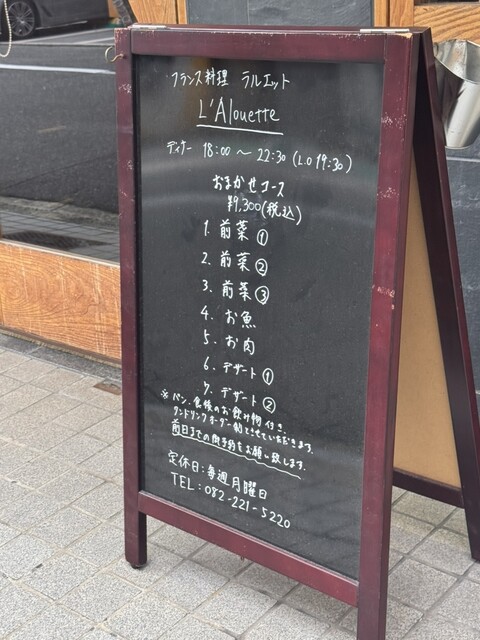 フランス料理 ラルエット
L'Alouette
ディナー 18:00 ～ 22:30 (L.O 19:30)
おまかせコース
¥9,300(税込)
1. 前菜 ①
2. 前菜 ②
3. 前菜 ③
4. お魚
5. お肉
6. デザート ①
7. デザート ②
※ パン、食後のお飲み物付き。
ワンドリンクオーダー制とさせていただきます。
前日までの御予約をお願い致します。
定休日:毎週月曜日
TEL:082-221-5220